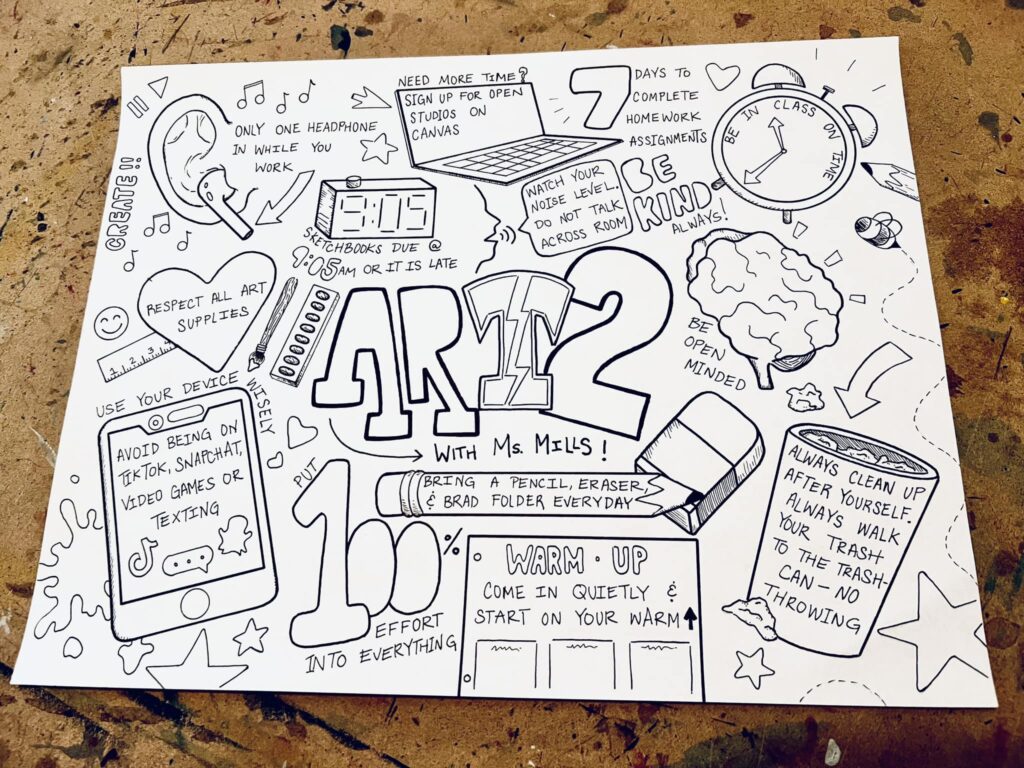 CREATE!!
ONLY ONE HEADPHONE
IN WHILE YOU
WORK
NEED MORE TIME?
SIGN UP FOR OPEN
STUDIOS ON
CANVAS
7
DAYS TO
COMPLETE
HOMEWORK
ASSIGNMENTS
BE IN CLASS ON TIME
9:05
SKETCHBOOKS DUE @
9:05AM OR IT IS LATE
WATCH YOUR
NOISE LEVEL.
DO NOT TALK
ACROSS ROOM
BE
KIND
ALWAYS!
RESPECT ALL ART
SUPPLIES
1 2 3 4
ART 2
WITH Ms. MILLS!
BE
OPEN
MINDED
USE YOUR DEVICE WISELY
AVOID BEING ON
TIKTOK, SNAPCHAT,
VIDEO GAMES OR
TEXTING
PUT
100%
EFFORT
INTO EVERYTHING
BRING A PENCIL, ERASER,
& BRAD FOLDER EVERYDAY
WARM · UP
COME IN QUIETLY &
START ON YOUR WARM
ALWAYS CLEAN UP
AFTER YOURSELF.
ALWAYS WALK
YOUR TRASH
TO THE TRASH-
CAN — NO
THROWING